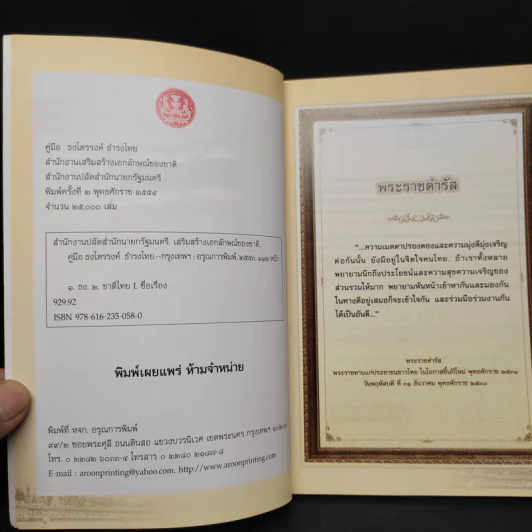 คู่มือ ธงไตรรงค์ ธำรงไทย
สำนักงานเสริมสร้างเอกลักษณ์ของชาติ
สำนักงานปลัดสำนักนายกรัฐมนตรี
พิมพ์ครั้งที่ ๒ พุทธศักราช ๒๕๕๔
จำนวน ๒๕,๐๐๐ เล่ม
สำนักงานปลัดสำนักนายกรัฐมนตรี. เสริมสร้างเอกลักษณ์ของชาติ.
คู่มือ ธงไตรรงค์ ธำรงไทย.--กรุงเทพฯ : อรุณการพิมพ์, ๒๕๕๐. ๑๑๒ หน้า
๑. ธง. ๒. ชาติไทย I. ชื่อเรื่อง
929.92
ISBN 978-616-235-058-0
พิมพ์เผยแพร่ ห้ามจำหน่าย
พิมพ์ที่ หจก. อรุณการพิมพ์
๙๙/๒ ซอยพระศุลี ถนนดินสอ แขวงบวรนิเวศ เขตพระนคร กรุงเทพฯ
โทร. ๐ ๒๒๘๒ ๖๐๓๓-๔ โทรสาร ๐ ๒๒๘๐ ๒๑๘๗-๘
E-mail : aroonprinting@yahoo.com, http://www.aroonprinting.com
พระราชดำรัส
"...ความเมตตาปรองดองและความมุ่งดีมุ่งเจริญ
ต่อกันนั้น ยังมีอยู่ในจิตใจคนไทย. ถ้าเราทั้งหลาย
พยายามนึกถึงประโยชน์และความสุขความเจริญของ
ส่วนรวมให้มาก พยายามหันหน้าเข้าหากันและมองกัน
ในทางดีอยู่เสมอก็จะเข้าใจกัน และร่วมมือร่วมงานกัน
ได้เป็นอันดี..."
พระราชดำรัส
พระราชทานแก่ประชาชนชาวไทย ในโอกาสขึ้นปีใหม่ พุทธศักราช ๒๕๐๑
วันพฤหัสบดี ที่ ๓๑ ธันวาคม พุทธศักราช ๒๕๐๐